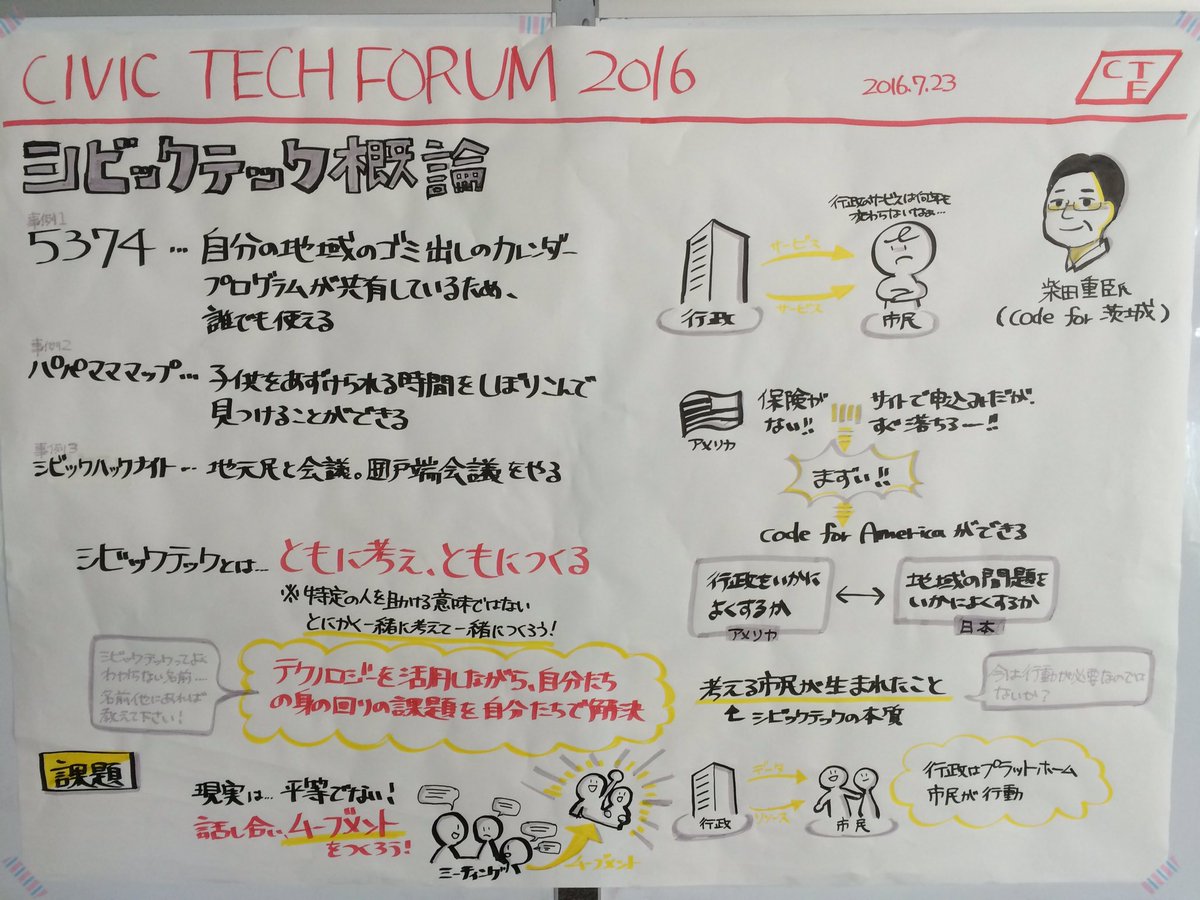 CIVIC TECH FORUM 2016
2016.7.23
CTF
シビックテック概論
事例1
5374…自分の地域のゴミ出しのカレンダー
プログラムが共有しているため、
誰でも使える
事例2
パパママップ…子供をあずけられる時間をしぼりこんで
見つけることができる
事例3
シビックハックナイト…地元民と会議。井戸端会議をやる
シビックテックとは…ともに考え、ともにつくる
※特定の人を助ける意味ではない
とにかく一緒に考えて一緒につくろう!
シビックテックってよく
わからない名前…
名前他にあれば
教えて下さい!
テクノロジーを活用しながら、自分たち
の身の回りの課題を自分たちで解決
課題
現実は…平等でない!
話し合い、ムーブメント
をつくろう!
ミーティング
ムーブメント
行政のサービスは何年も
変わらないなぁ…
サービス
サービス
行政
市民
柴田重臣氏
(Code for 茨城)
アメリカ
保険が
ない!!
サイトで申込みだが、
すぐ落ちるー!!
まずい!!
Code for Americaができる
行政をいかに
よくするか
アメリカ
地域の問題を
いかによくするか
日本
考える市民が生まれたこと
シビックテックの本質
今は行動が必要なのでは
ないか?
行政
データ
リソース
市民
行政はプラットホーム
市民が行動